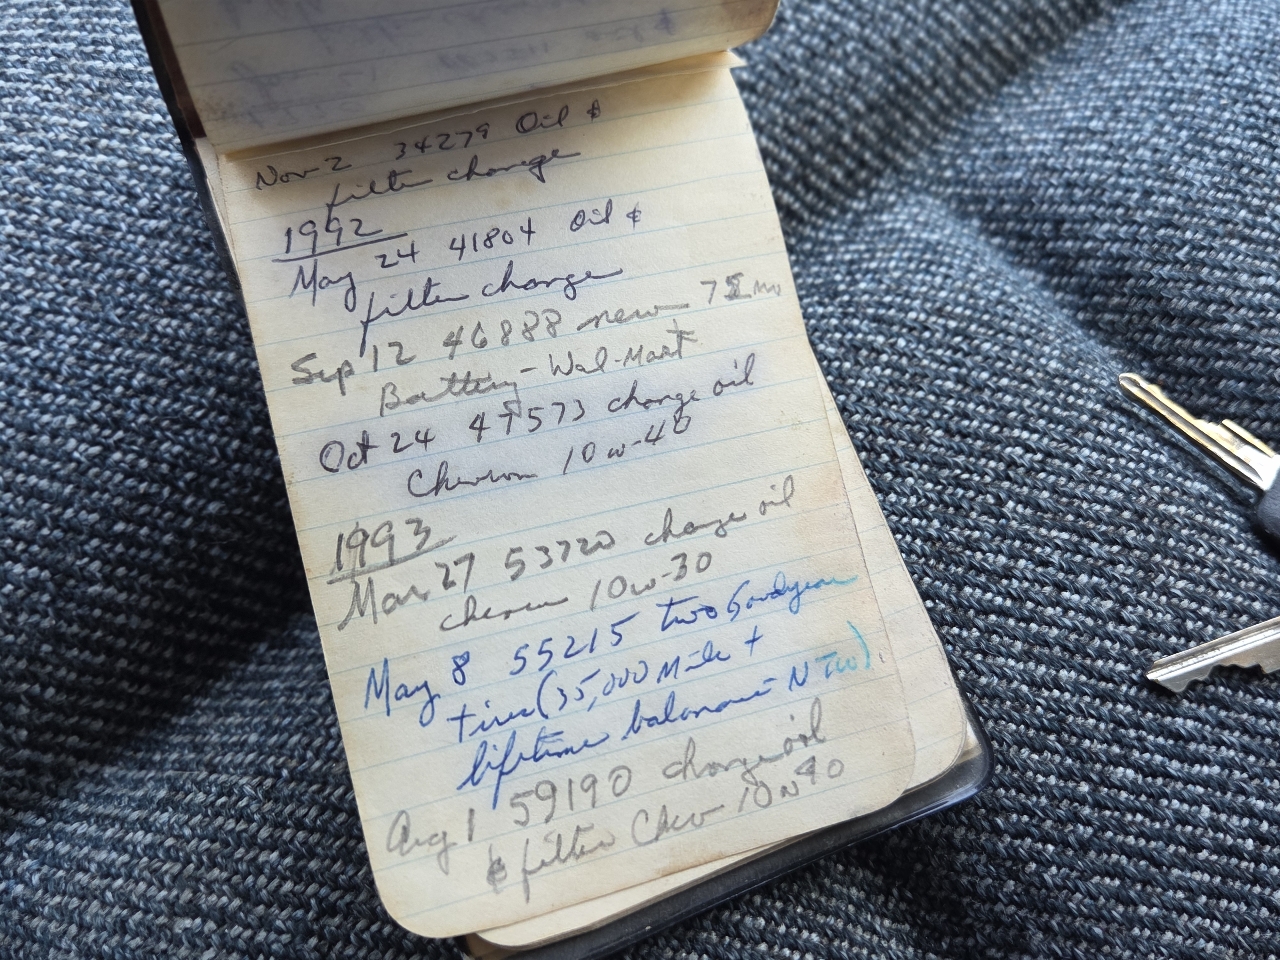 Nov 2 34279 Oil &
filter change
1992
May 24 41804 Oil &
filter change
Sep 12 46888 new 75 mo
Battery - Wal-Mart
Oct 24 47573 change oil
Chevron 10w-40
1993
Mar 27 53720 change oil
chevron 10w-30
May 8 55215 two Goodyear
tires (35,000 Mile +
lifetime balance - NTW).
Aug 1 59190 change oil
& filter Chev 10w40